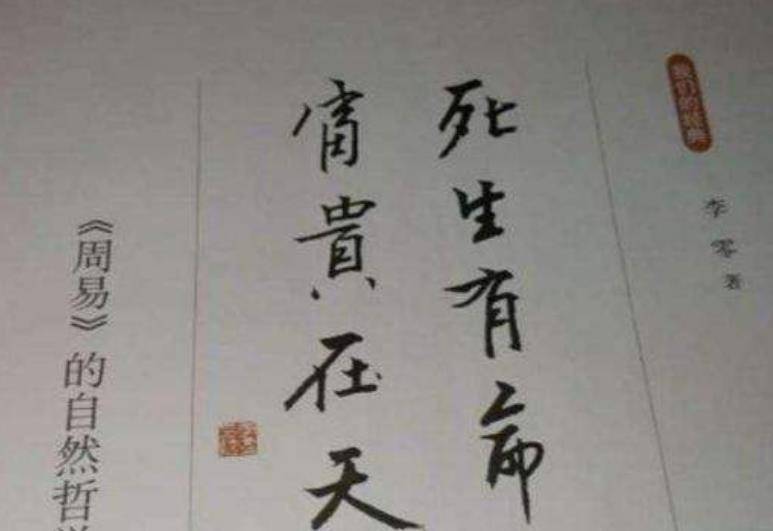 我们的经典
李零 著
死生有命
富貴在天
《周易》的自然哲